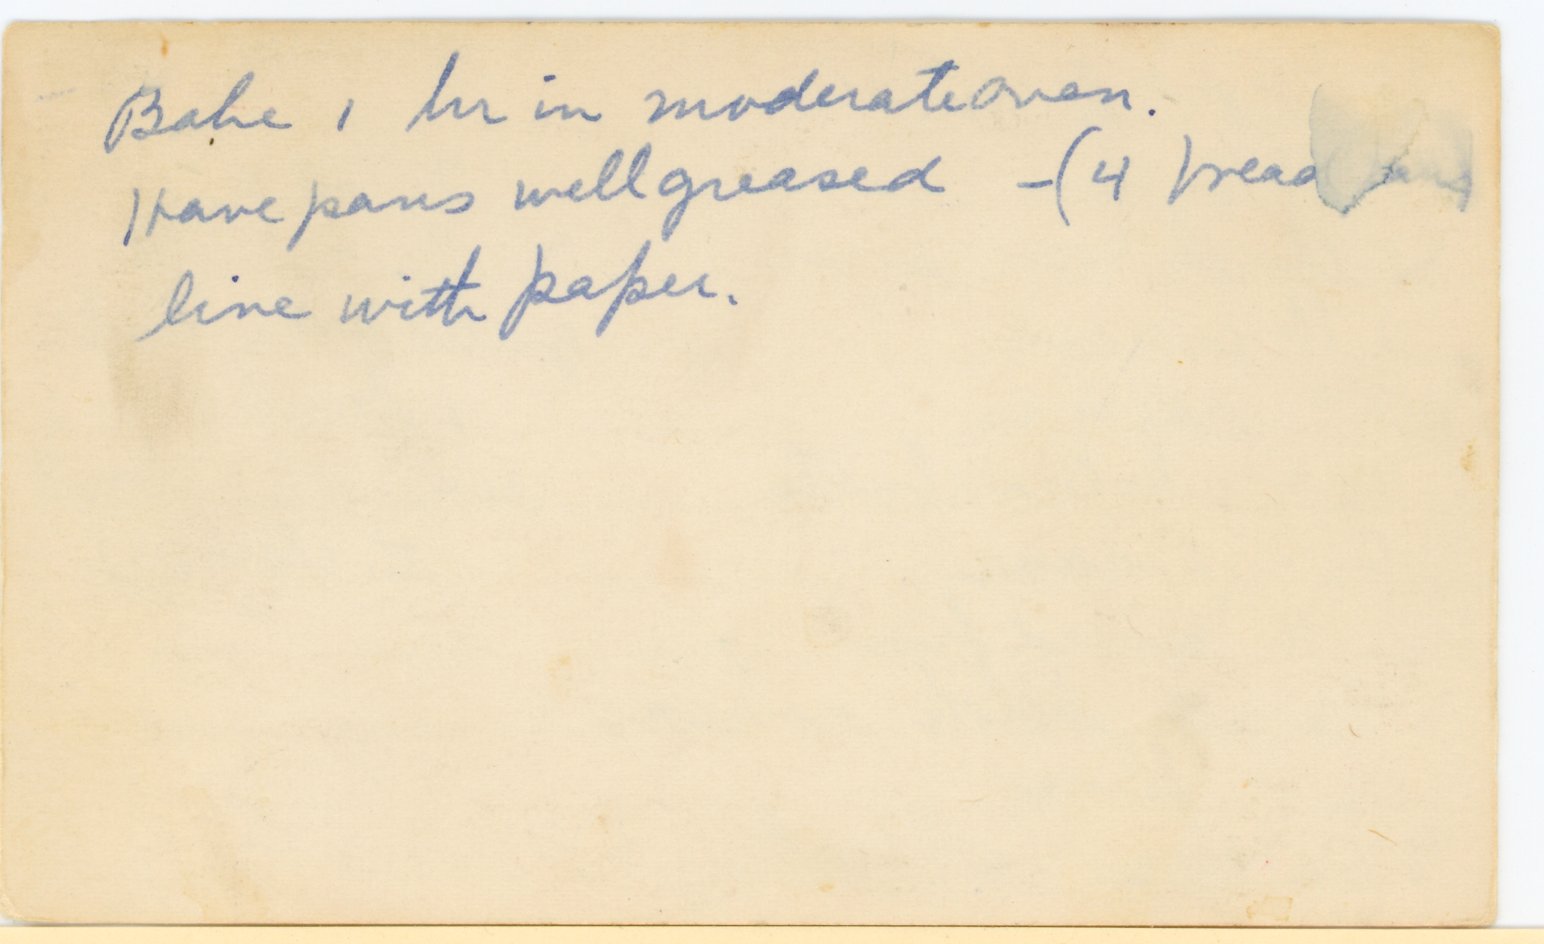 Bake 1 hr in moderate oven.
Have pans well greased - (4 bread
line with paper.